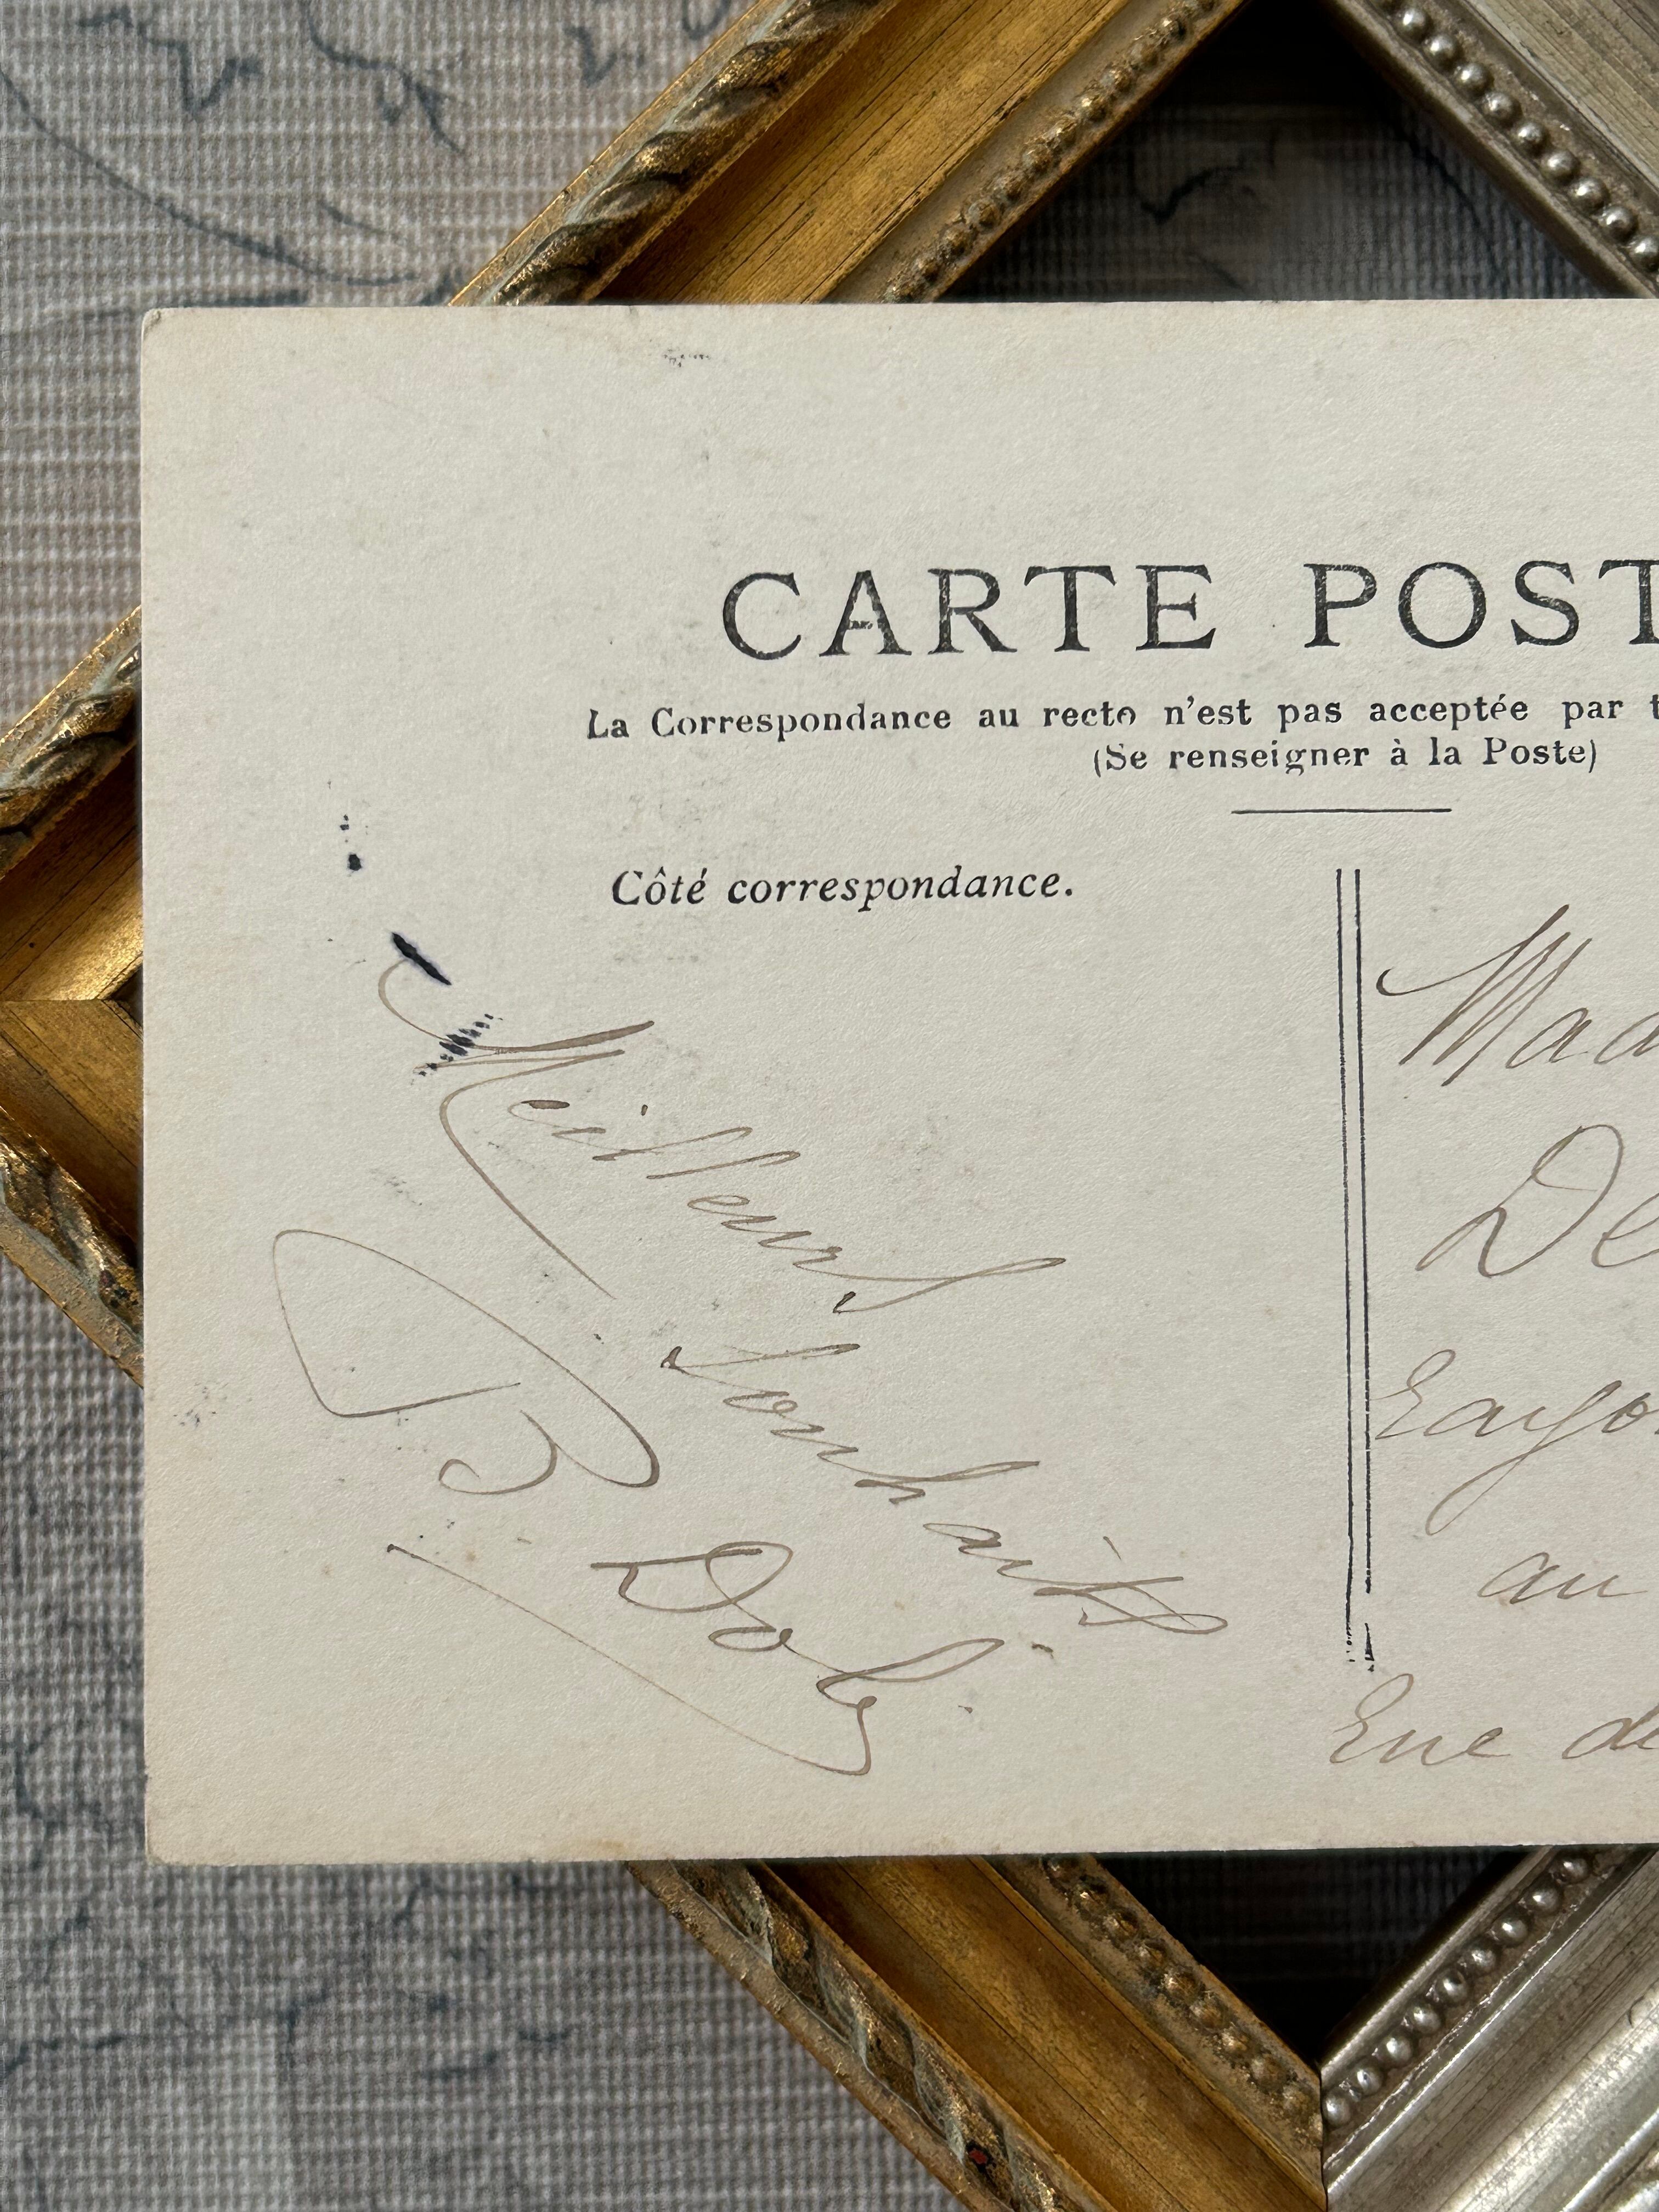 CARTE POST
La Correspondance au recto n'est pas acceptée par t
(Se renseigner à la Poste)
Côté correspondance.
Meilleurs
souhaits
B. Doby
Mad
De
Rayo
au
Rue de